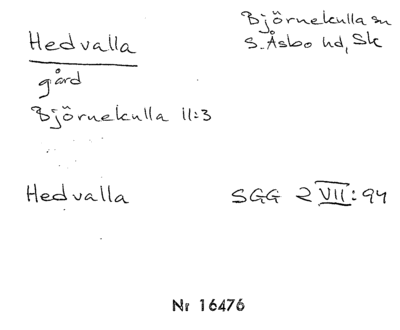 Hedvalla
Björnekulla sn
S. Åsbo hd, Sk
gård
Björnekulla 11:3
Hedvalla
SGG 2 VII: 94
Nr 16476